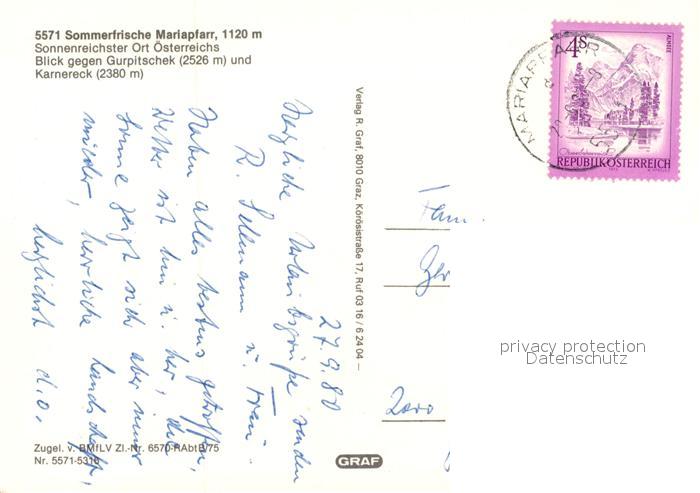 5571 Sommerfrische Mariapfarr, 1120 m
Sonnenreichster Ort Österreichs
Blick gegen Gurpitschek (2526 m) und
Karnereck (2380 m)
27.9.80
Herzliche Urlaubsgrüße senden
R. u. Frau.
Haben alles bestens getroffen,
Wetter ist hin u. her, die
Sonne zeigt sich aber immer
wieder, herrliche Landschaft,
herzlichst d.o.
Verlag R. Graf, 8010 Graz, Körösistraße 17, Ruf 03 16 / 6 24 04 –
MARIAPFARR
4S
ALMSEE
REPUBLIK ÖSTERREICH
Fam.
privacy protection
Datenschutz
Zugel. v. BMfLV Zl.-Nr. 6570-RAbtB/75
Nr. 5571-5316
GRAF